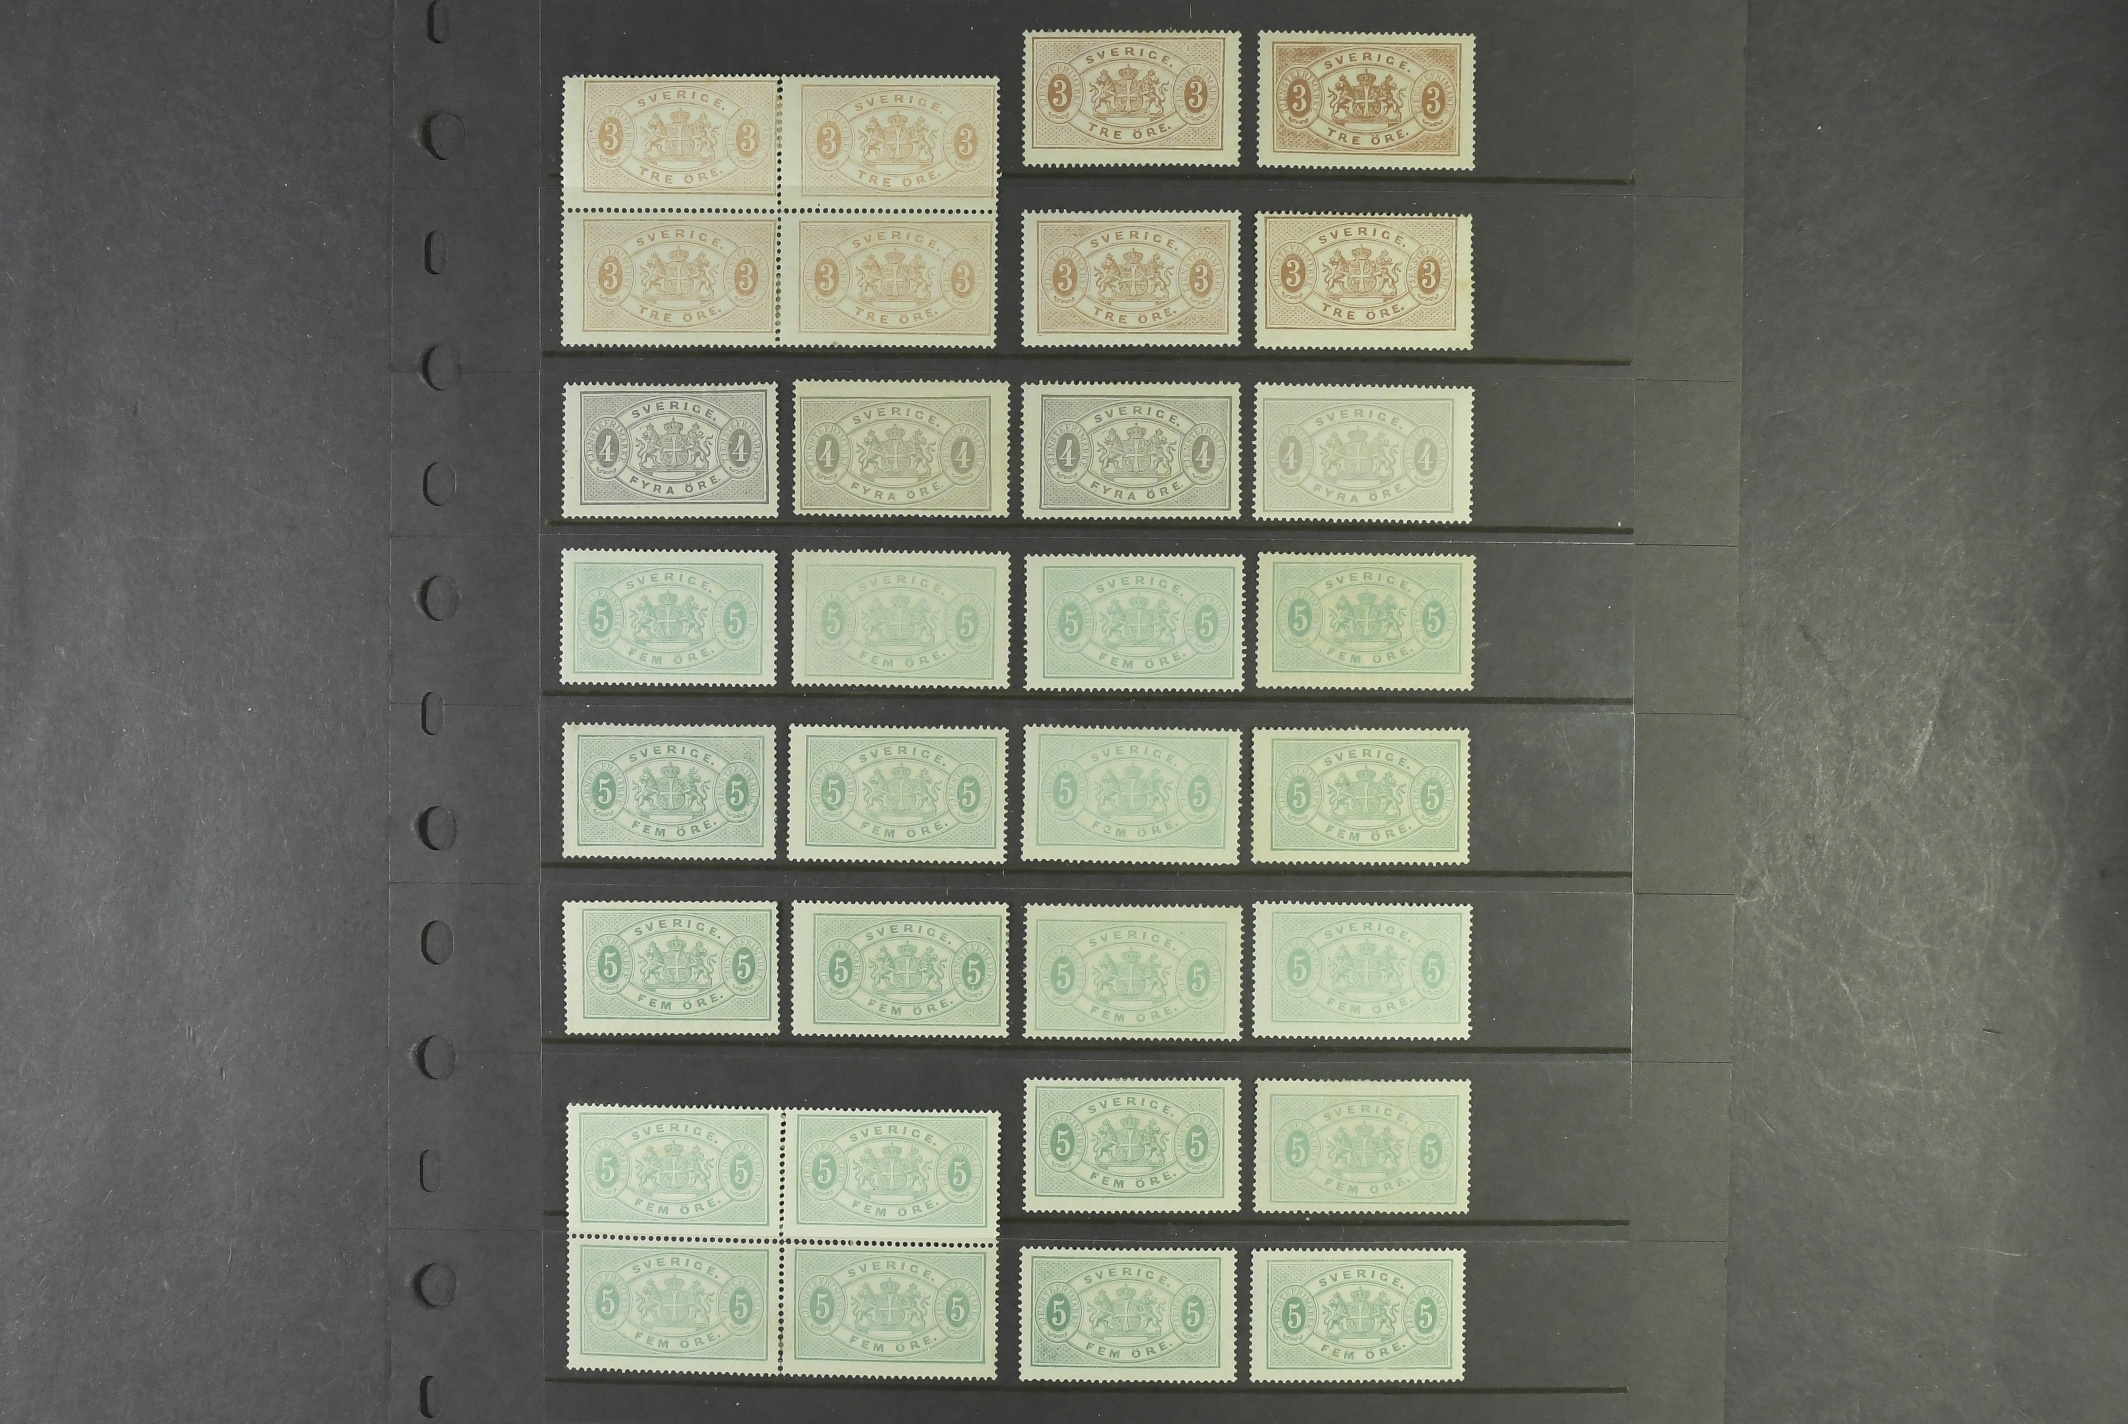 SVERIGE.
3 3
TRE ÖRE.
SVERIGE.
3 3
TRE ÖRE.
SVERIGE.
3 3
TRE ÖRE.
SVERIGE.
3 3
TRE ÖRE.
SVERIGE.
3 3
TRE ÖRE.
SVERIGE.
3 3
TRE ÖRE.
SVERIGE.
3 3
TRE ÖRE.
SVERIGE.
3 3
TRE ÖRE.
SVERIGE.
4 4
FYRA ÖRE.
SVERIGE.
4 4
FYRA ÖRE.
SVERIGE.
4 4
FYRA ÖRE.
SVERIGE.
4 4
FYRA ÖRE.
SVERIGE.
5 5
FEM ÖRE.
SVERIGE.
5 5
FEM ÖRE.
SVERIGE.
5 5
FEM ÖRE.
SVERIGE.
5 5
FEM ÖRE.
SVERIGE.
5 5
FEM ÖRE.
SVERIGE.
5 5
FEM ÖRE.
SVERIGE.
5 5
FEM ÖRE.
SVERIGE.
5 5
FEM ÖRE.
SVERIGE.
5 5
FEM ÖRE.
SVERIGE.
5 5
FEM ÖRE.
SVERIGE.
5 5
FEM ÖRE.
SVERIGE.
5 5
FEM ÖRE.
SVERIGE.
5 5
FEM ÖRE.
SVERIGE.
5 5
FEM ÖRE.
SVERIGE.
5 5
FEM ÖRE.
SVERIGE.
5 5
FEM ÖRE.
SVERIGE.
5 5
FEM ÖRE.
SVERIGE.
5 5
FEM ÖRE.
SVERIGE.
5 5
FEM ÖRE.
SVERIGE.
5 5
FEM ÖRE.